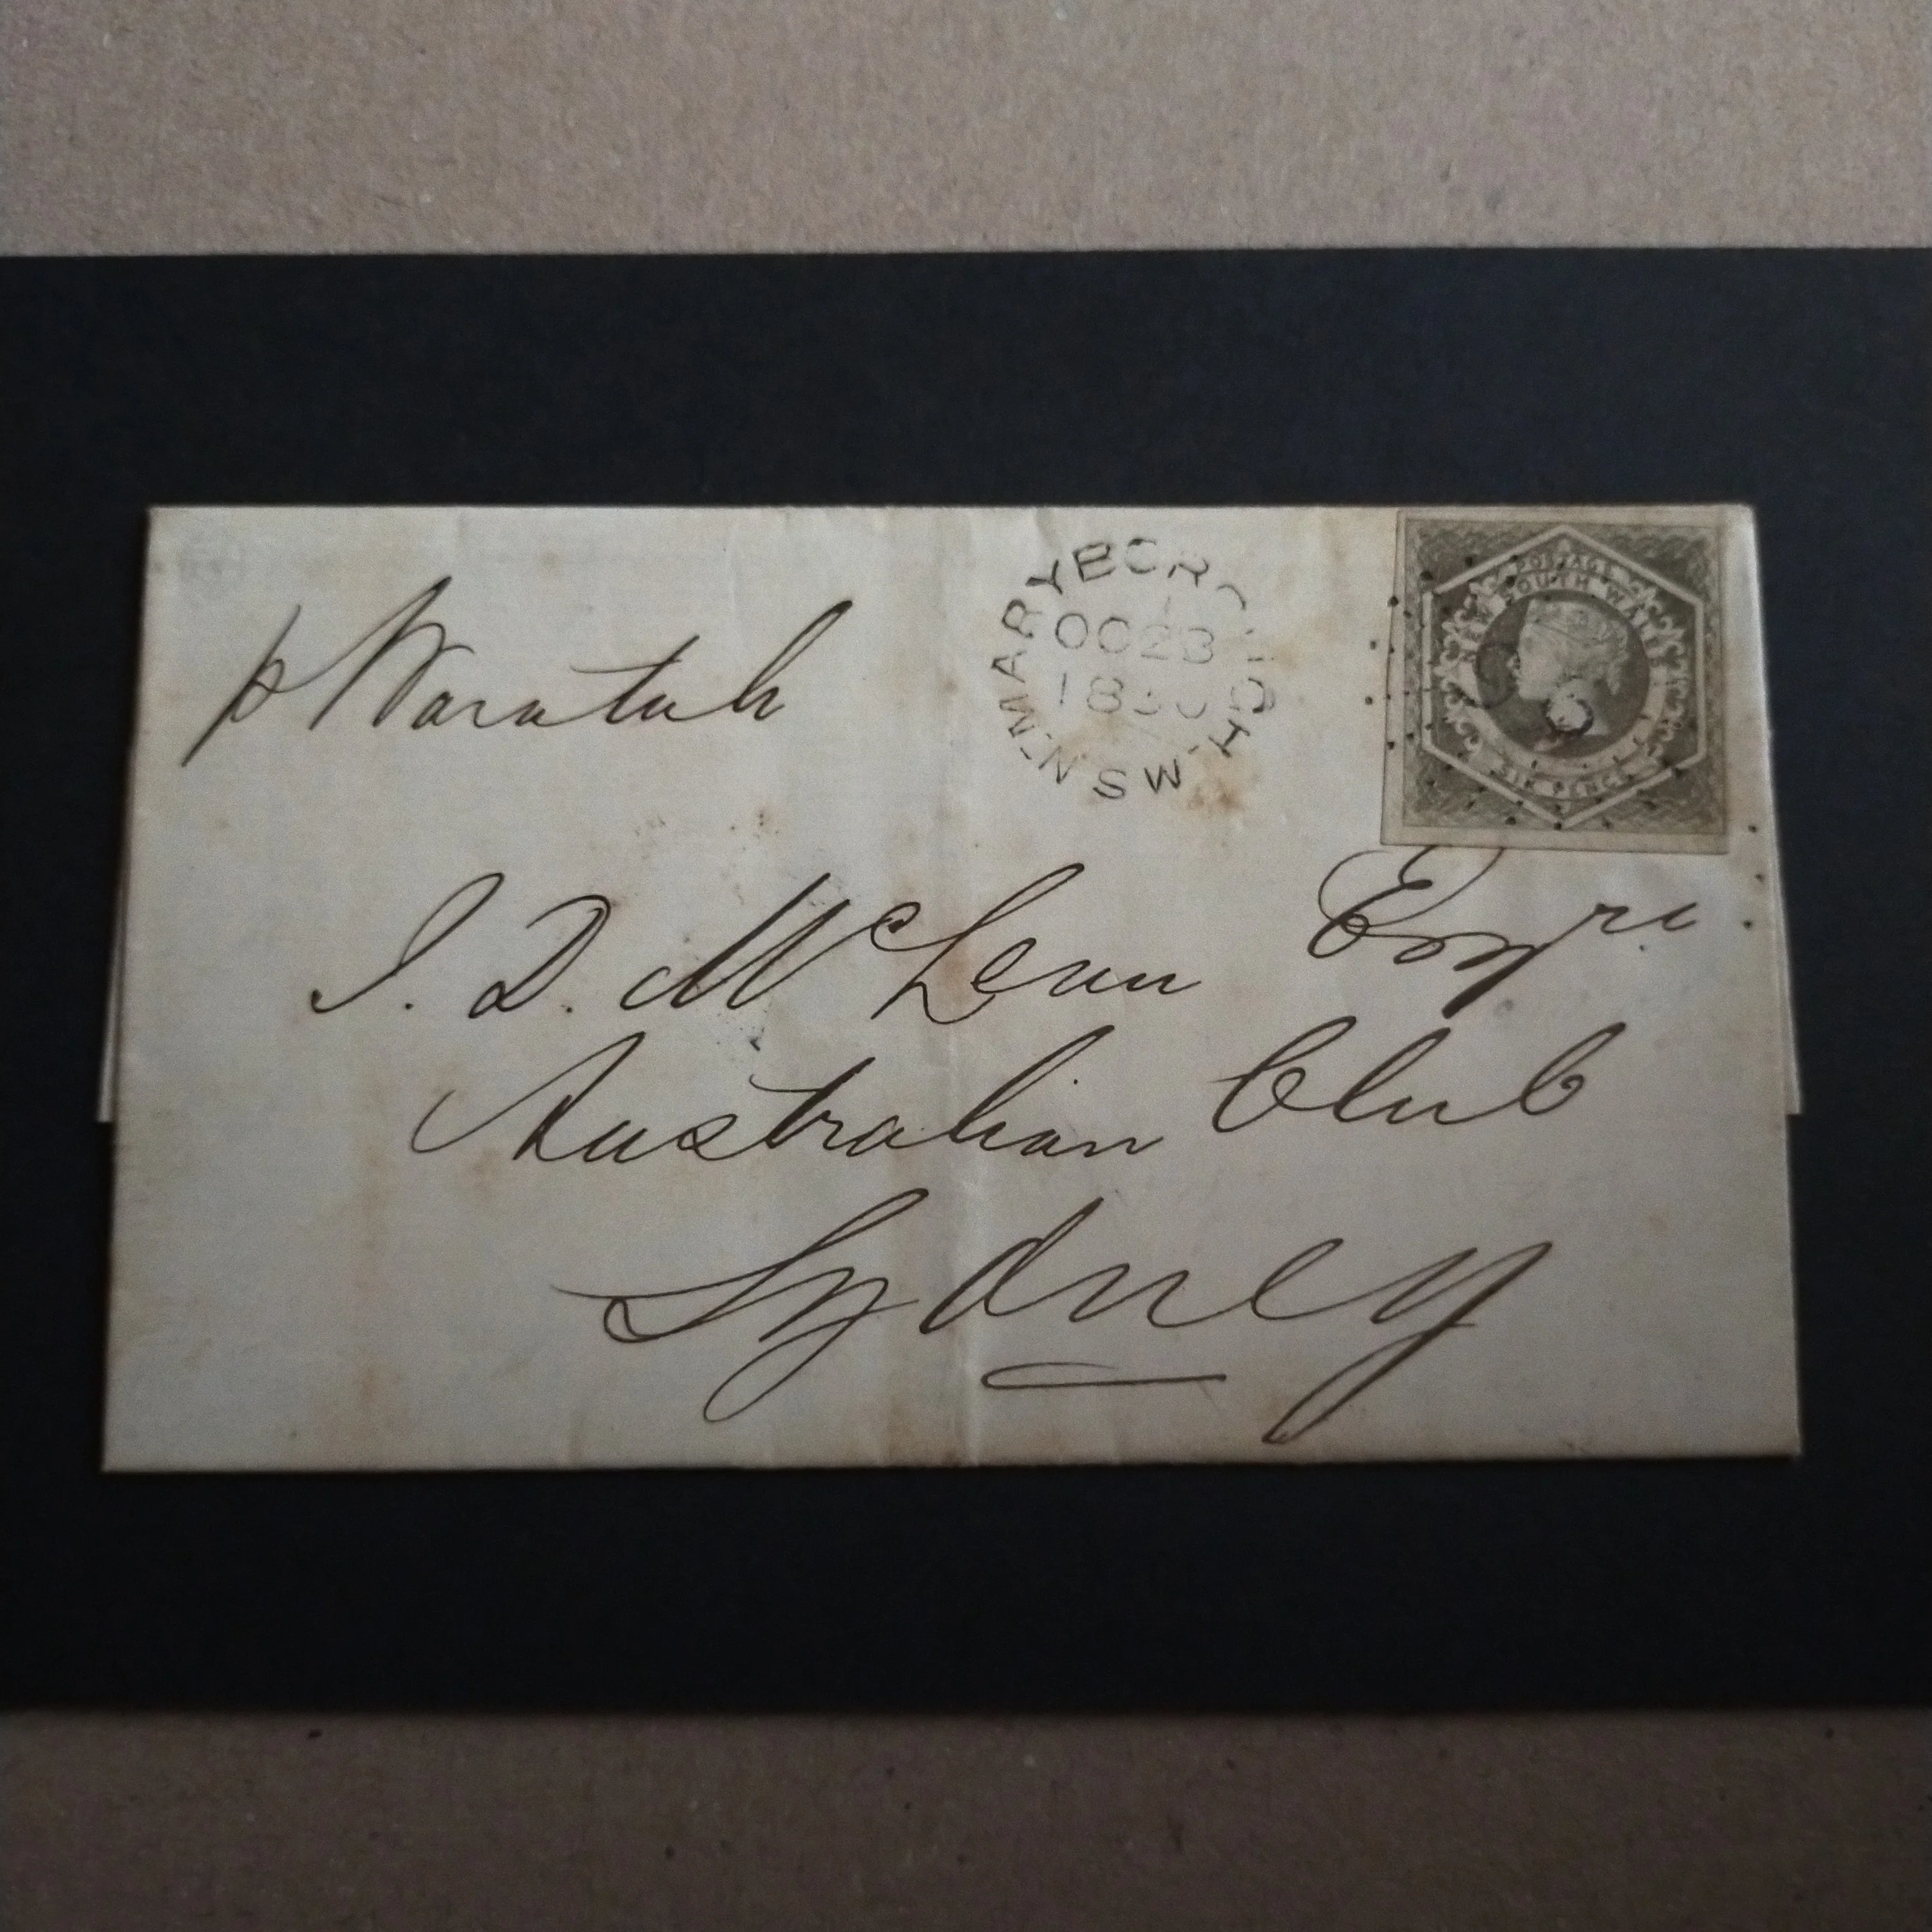 p Waratah
MARYBOROUGH
N.S.W
OC 23
POSTAGE
SOUTH WALES
SIX PENCE
J. D. McLean Esqre
Australian Club
Sydney